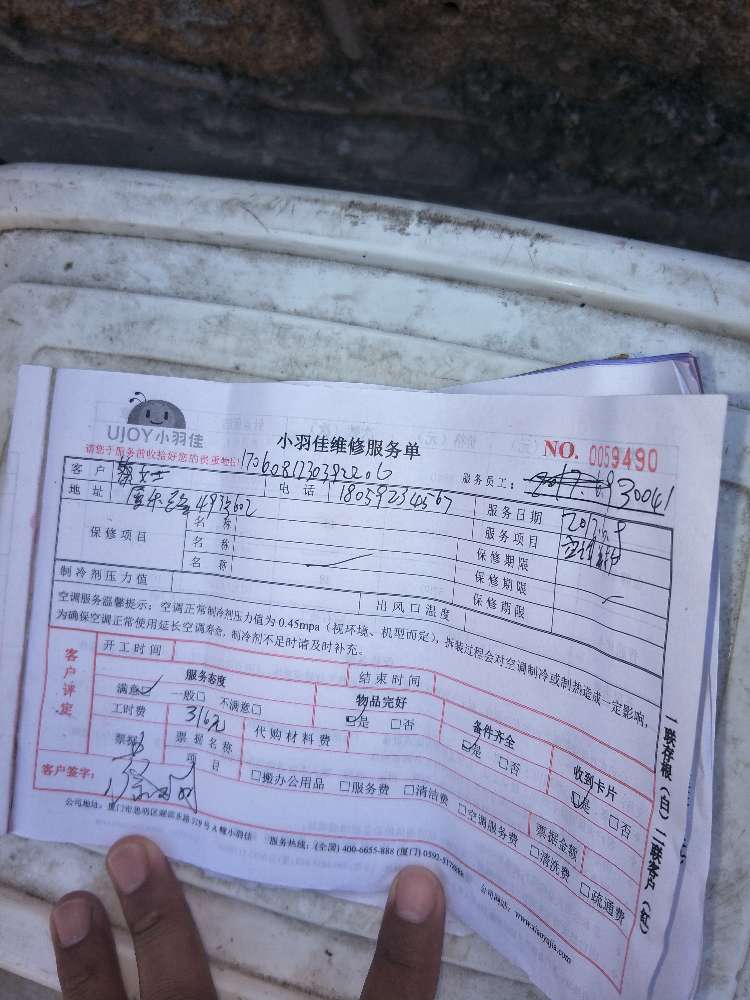 UJOY小羽佳
小羽佳维修服务单
NO. 0059490
请您于服务前收拾好您的贵重物品
1706081730392206
客户
女士
服务员工：
930041
地址
493号602
电话
18059234567
服务日期
2017.
保修项目
名称
服务项目
名称
保修期限
名称
保修期限
制冷剂压力值
出风口温度
保修期限
空调服务温馨提示：空调正常制冷剂压力值为0.45mpa（视环境、机型而定），拆装过程会对空调制冷或制热造成一定影响，
为确保空调正常使用延长空调寿命，制冷剂不足时请及时补充。
客户评定
开工时间
结束时间
服务态度
物品完好
备件齐全
收到卡片
满意□ 一般□ 不满意□
□是 □否
□是 □否
□是 □否
工时费
316元
代购材料费
票据
票据名称
项目
□搬办公用品 □服务费 □清洁费 □空调服务费 □清洗费 □疏通费
票据金额
客户签字：
公司地址：厦门市思明区 号A幢小羽佳
服务热线：(全国) 400-6655-888 (厦门)
公司网址：www.xiaoyujia.com
一联存根（白）二联客户（红）